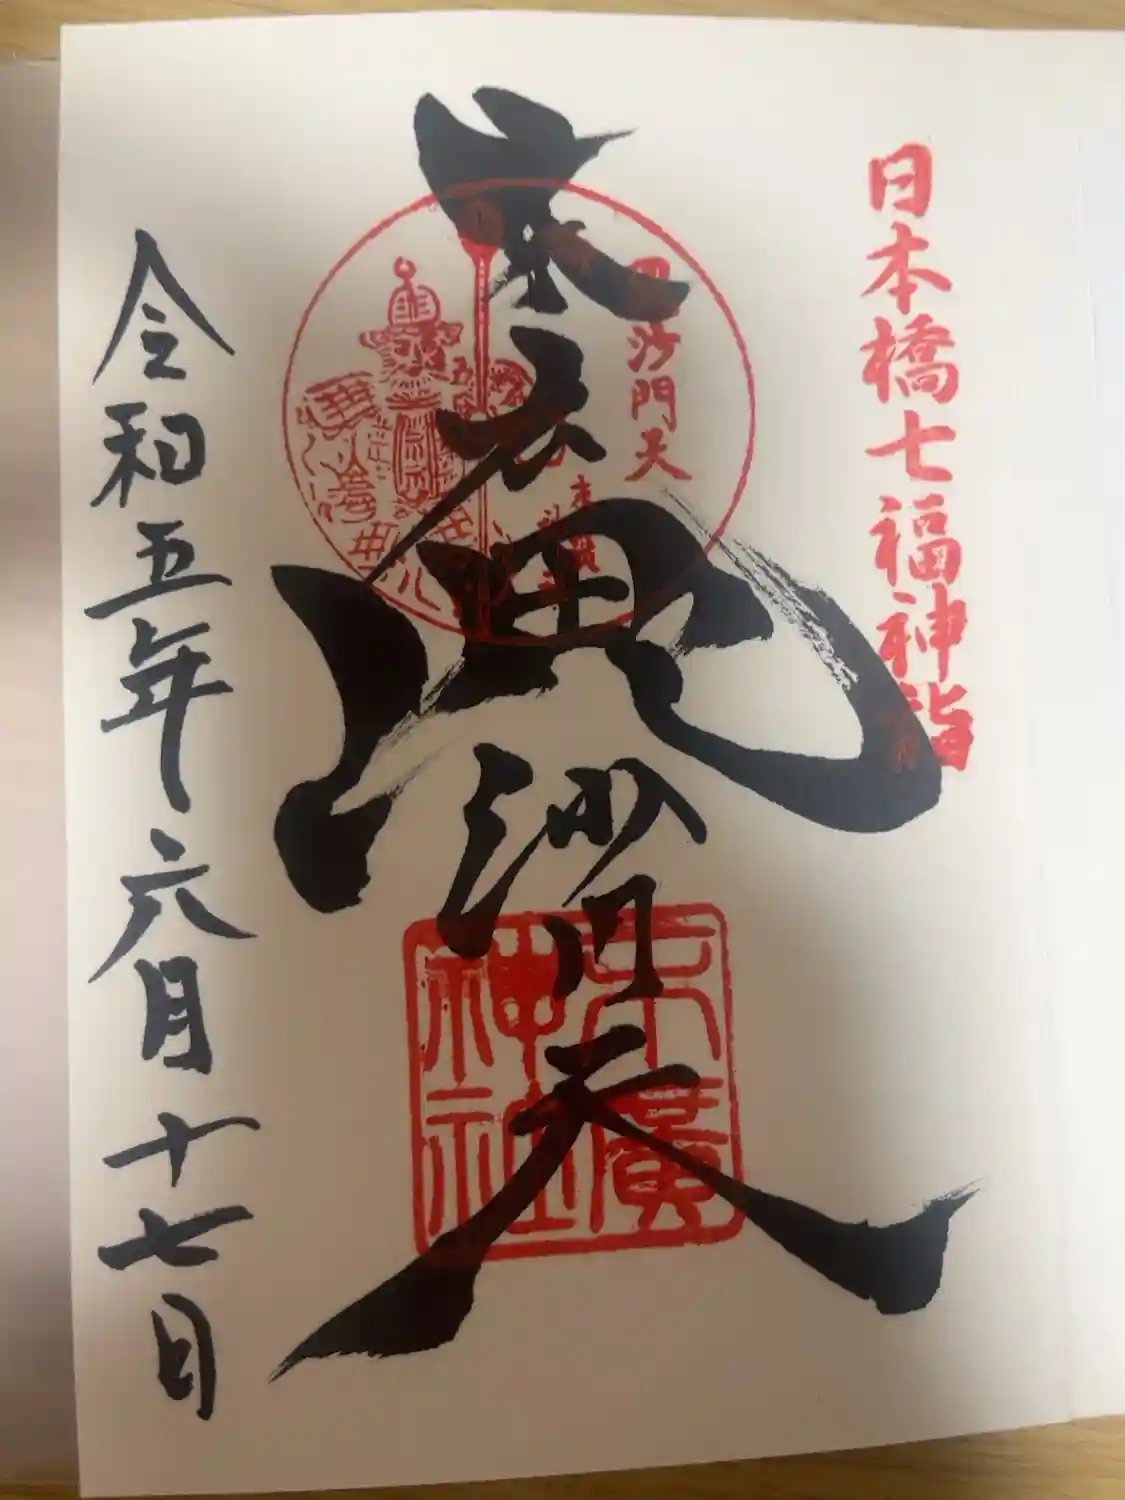 日本橋七福神詣
末広毘沙門天
毘沙門天
末廣神社
末廣
神社
令和五年六月十七日